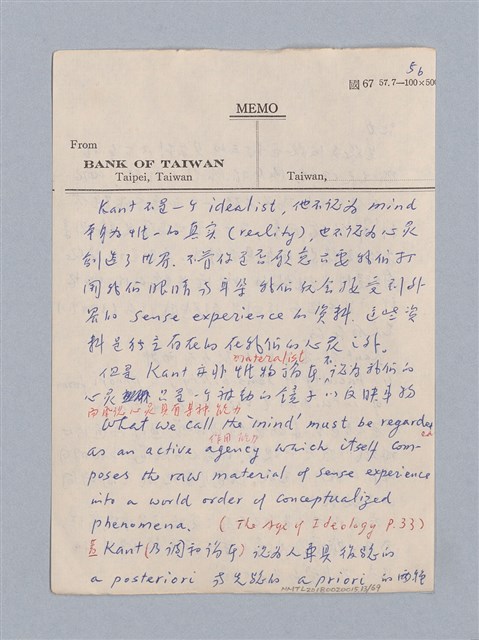 5b
國 67 57.7—100×500
MEMO
From
BANK OF TAIWAN
Taipei, Taiwan
Taiwan,
Kant 不是一个 idealist, 他不认为 mind
为唯一的真实 (reality), 也不认为心灵
创造了世界. 不管你是否愿意只要我们打
开我们眼睛与耳朵 我们就会接受到外
界的 sense experience 的资料. 这些资
料是独立存在的在我们的心灵之外.
materalist
但是 Kant 也非唯物论者, 不认为我们的
心灵只是一个被动的镜子以反映事物
心灵具有某种能力
What we call the 'mind' must be regarded
作用 能力
as an active agency which itself com-
poses the raw material of sense experience
into a world order of conceptualized
phenomena. (The Age of Ideology P.33)
Kant (乃调和论者) 认为人兼具后验的
a posteriori 与先验的 a priori 的两种